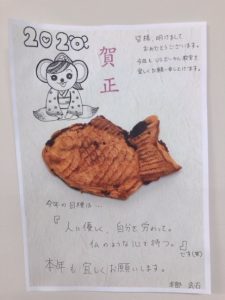 2020
賀正
皆様、明けまして
おめでとうございます。
今年も
宜しくお願い申し上げます。
今年の目標は…
『人に優しく、自分を労わって。
仏のような心を持つ。』
です(笑)
本年も宜しくお願いします。